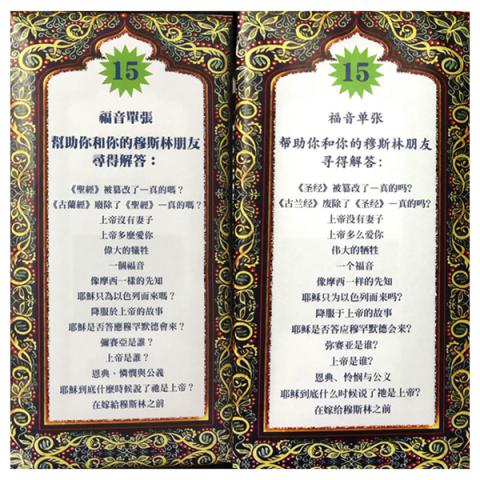 15
福音單張
幫助你和你的穆斯林朋友
尋得解答：
《聖經》被篡改了—真的嗎？
《古蘭經》廢除了《聖經》—真的嗎？
上帝沒有妻子
上帝多麼愛你
偉大的犧牲
一個福音
像摩西一樣的先知
耶穌只為以色列而來嗎？
降服於上帝的故事
耶穌是否答應穆罕默德會來？
彌賽亞是誰？
上帝是誰？
恩典、憐憫與公義
耶穌到底什麼時候說了祂是上帝？
在嫁給穆斯林之前
15
福音单张
帮助你和你的穆斯林朋友
寻得解答:
《圣经》被篡改了—真的吗?
《古兰经》废除了《圣经》—真的吗?
上帝没有妻子
上帝多么爱你
伟大的牺牲
一个福音
像摩西一样的先知
耶稣只为以色列而来吗?
降服于上帝的故事
耶稣是否答应穆罕默德会来?
弥赛亚是谁?
上帝是谁?
恩典、怜悯与公义
耶稣到底什么时候说了祂是上帝?
在嫁给穆斯林之前